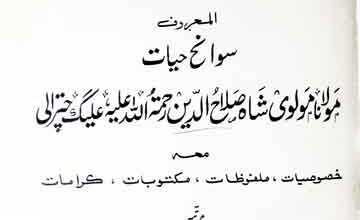 المعروف
سوانح حیات
مولانا مولوی شاہ صلاح الدین رحمۃ اللہ علیہ علیگ چترالی
معہ
خصوصیات، ملفوظات، مکتوبات، کرامات